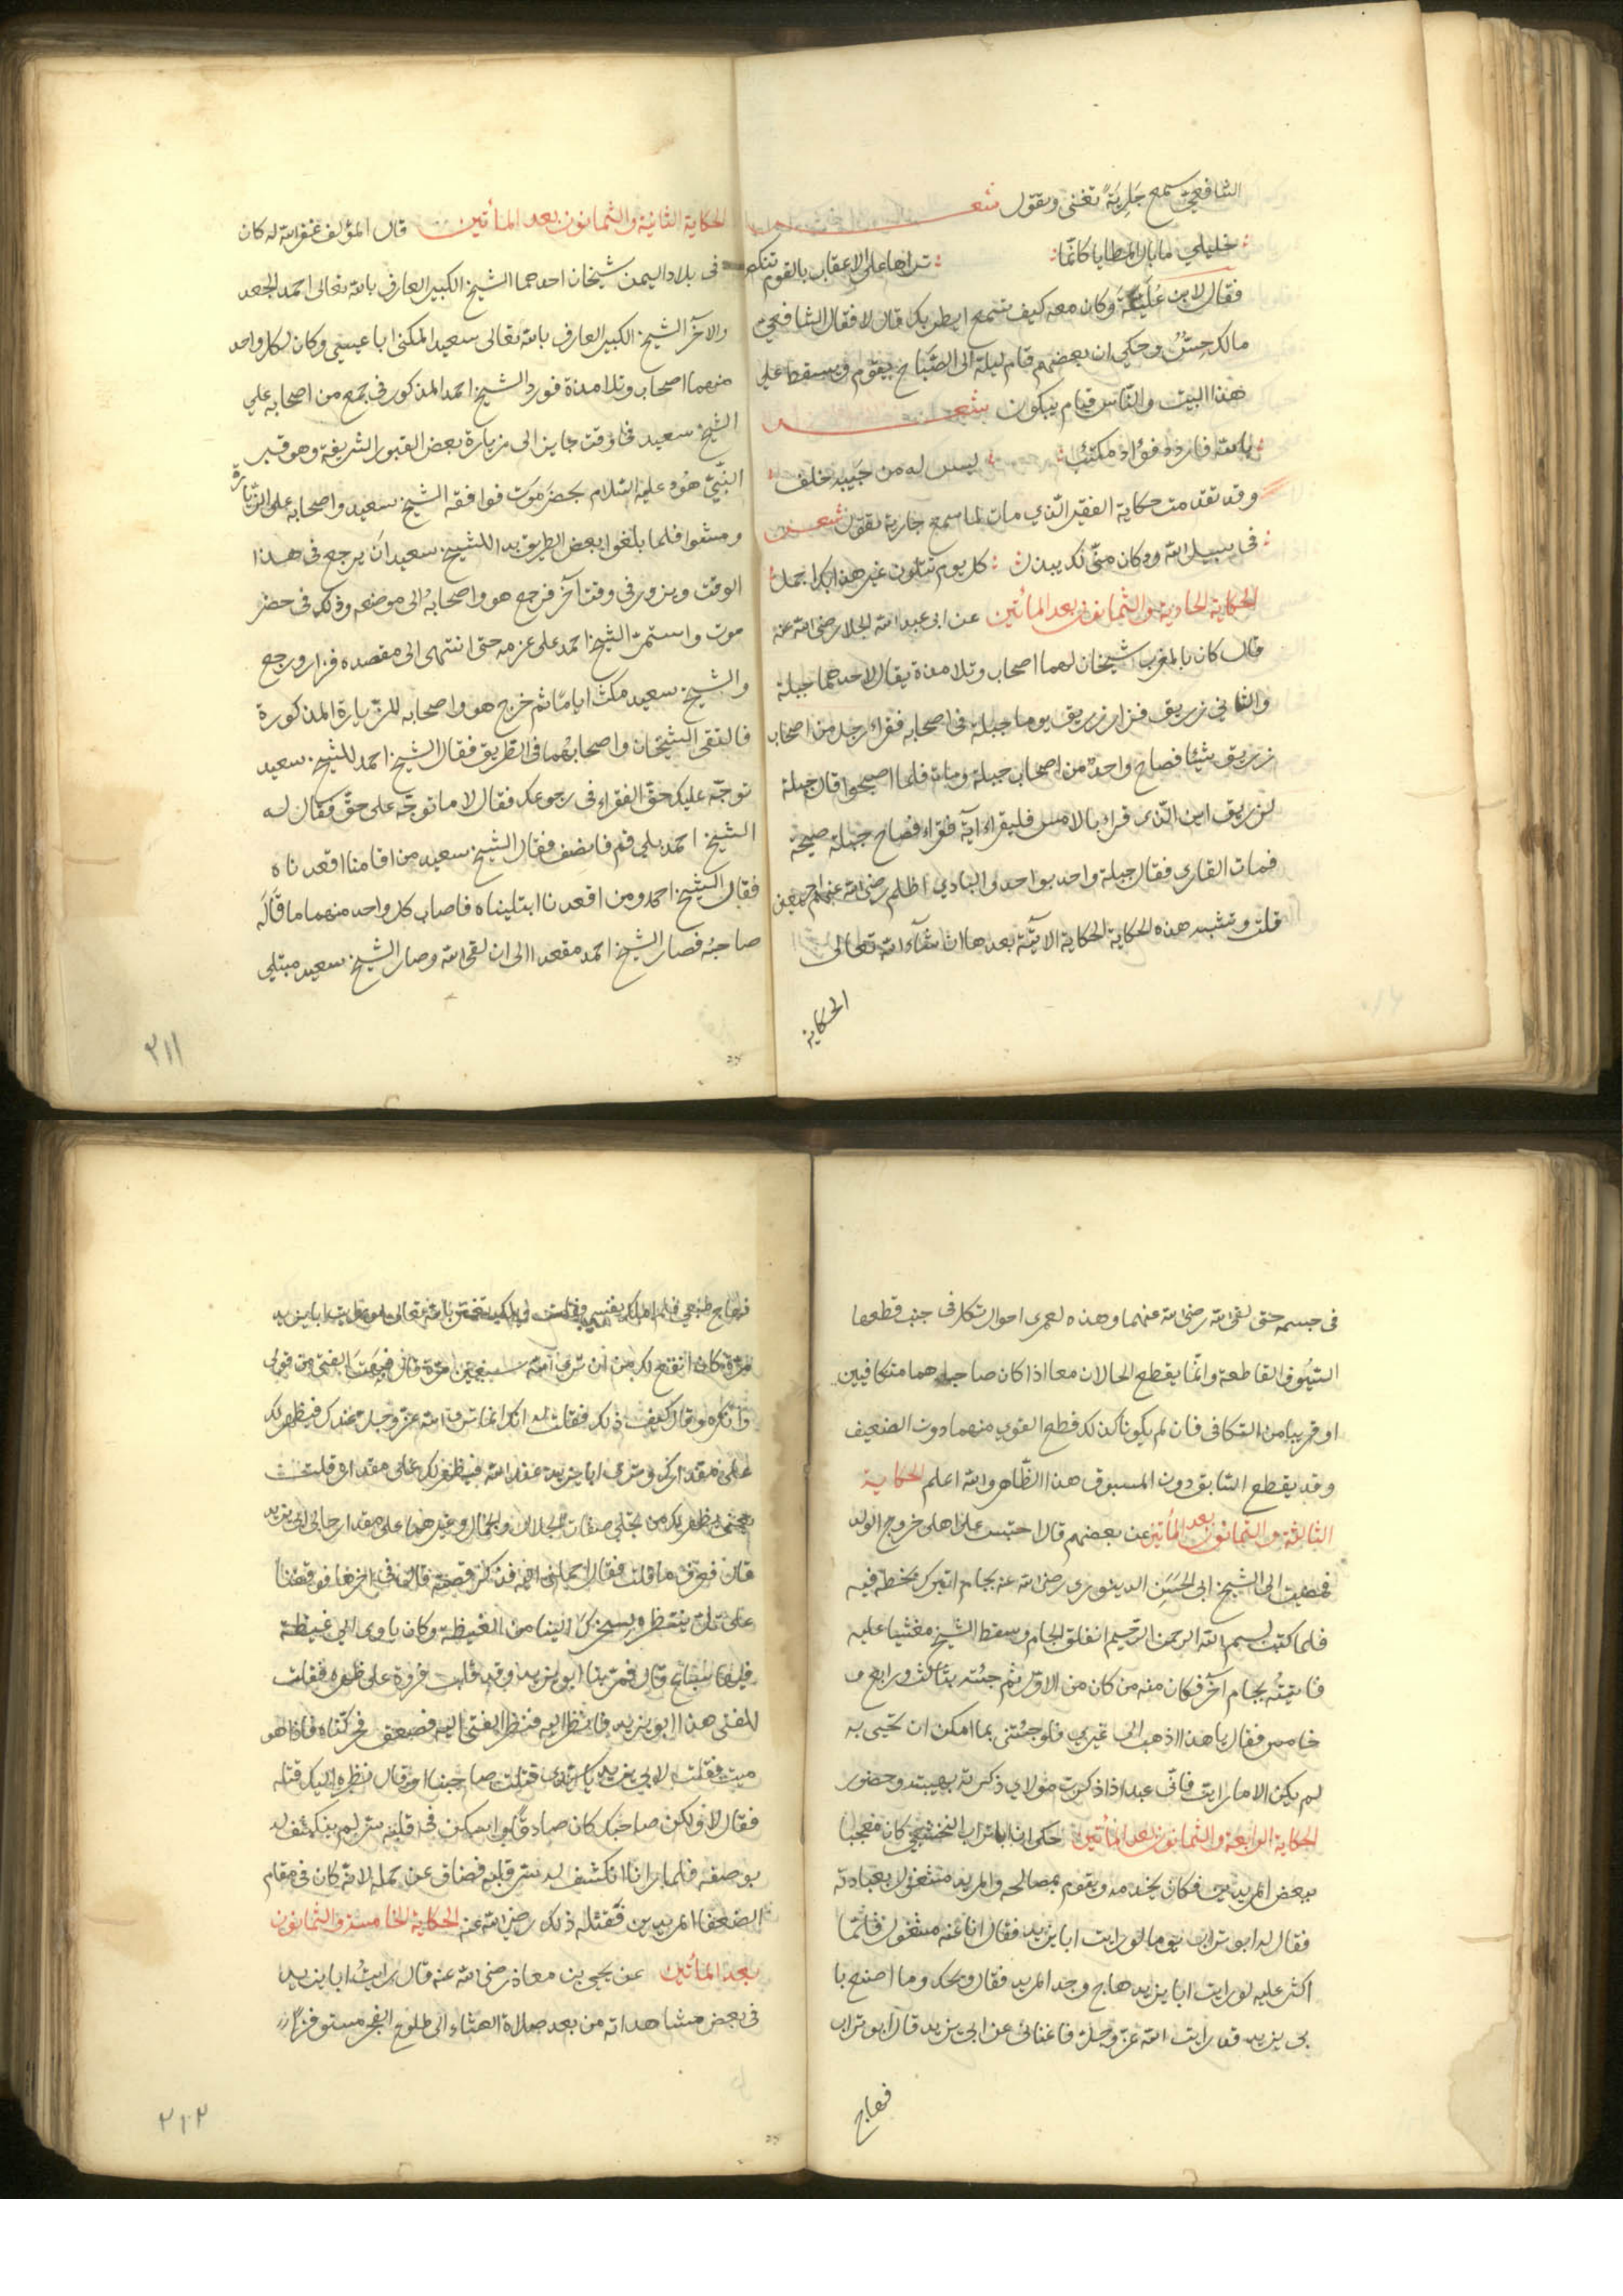 الشافعيّ سمع جَارِيَةً تغنى وتقول شعر
خليلي ما بال المطايا كانّما تراها على الاعقاب بالقوم تنكص
فقال لابن عُلَيَّة وكان معه كيف تسمع ايطربك قال لا فقال الشافعي
مالك حِسٌّ وحكي ان بعضهم قام ليلة الى الصَّبَاح يقوم ويسقط على
هذا البيت والنّاس قيام يبكون شعر
بالله فاردد فؤاد مكتئب ليس له من حَبيبه خلف
وقد تقدمت حكاية الفقير الّذي مات لما سمع جارية تقول شعر
فى سبيل الله ود كان منّي لك يبذل كل يوم تتلون غير هذا بك اجمل
الحكاية الحادية والثمانون بعد المأتين عن ابى عبد الله الجلا رضى الله عنه
قال كان بالمغرب شيخان لهما اصحاب وتلامذة يقال لاحدهما جبلة
والثاني زريق فزار زريق يوما جبلة فى اصحابه فقراء رجل من اصحاب
زريق شيئا فصاح واحد من اصحاب جبلة ومات فلما اصبحوا قال جبلة
لزريق اين الّذى قراء بالامس فليقراء آية فقراء فصاح جبلة صيحة
فمات القارى فقال جبلة واحد بواحد والبادي اظلم رضى الله عنهم اجمعين
قلت وتشبه هذه الحكاية الحكاية الاتية بعدها ان شآء الله تعالى
الحكاية
الحكاية الثانية والثمانون بعد المأتين قال المؤلف غفر الله له كان
فى بلاد اليمن شيخان احدهما الشيخ الكبير العارف بالله تعالى احمد الجعد
والآخر الشيخ الكبير العارف بالله تعالى سعيد المكنى ابا عيسى وكان لكل واحد
منهما اصحاب وتلامذة فورد الشيخ احمد المذكور فى جمع من اصحابه على
الشيخ سعيد فى وقت جايز الى زيارة بعض القبور الشريفة وهو قبر
النّبيّ هُود عليه السّلام بحضرموت فوافقه الشيخ سعيد واصحابه على الزيارة
ومشوا فلما بلغوا بعض الطريق بدا للشيخ سعيد انَ يرجع فى هذا
الوقت ويزور فى وقت آخر فرجع هو واصحابهُ الى موضعه وذلك فى حضر
موت واستمرّ الشيخ احمد على عزمه حتى انتهى الى مقصده فزار ورجع
والشيخ سعيد مكث ايامًا ثم خرج هو واصحابه للزيارة المذكورة
فالتقى الشيخان واصحابهُما فى الطريق فقال الشيخ احمد للشيخ سعيد
توجّه عليك حقّ الفقراء فى رجوعك فقال لا ما توجّه على حقّ فقال له
الشيخ احمد بلى قم فانصف فقال الشيخ سعيد من اقامنا اقعدناه
فقال الشيخ احمد ومن اقعدنا ابتليناه فاصاب كل واحد منهما ما قَالَهُ
صاحبُه فصار الشيخ احمد مقعدا الى ان لقى الله وصار الشيخ سعيد مبتلي
٢١١
فى جسمه حتى لقى الله رضى الله عنهما وهذه لعمرى احوال تكل فى جنب قطعها
السّيُوف القاطعة وانّما يقطع الحالان معا اذا كان صاحبهما متكافيين
او قريبا من التكافى فان لم يكونا كذلك قطع القوي منهما دون الضعيف
وقد يقطع السّابق دون المسبوق هذا الظّاهر والله اعلم الحكاية
الثالثة والثمانون بعد المأتين عن بعضهم قال احتبس على اهلى خروج الولد
فمضيت الى الشيخ ابى الحسَن الدينورى رضى الله عنه بجام اتبرك بخطه فيه
فلما كتب بسم الله الرحمن الرّحيم انفلق الجام وسقط الشيخ مغشيا عليه
فاتيتُه بجام آخر فكان منه من كان من الاوّل ثم جئته بثالث ورابع و
خامس فقال يا هذا اذهب الى غيري فلو جئتنى بما امكن ان تجيى به
لم يكن الا ما رايت فانّى عبد اذا ذكرت مولاي ذكرته بهيبته وحضور
الحكاية الرابعة والثمانون بعد المأتين حكى ان ابا تراب النخشبي كان معجبا
ببعض المريدين فكان يخدمه ويقوم بمصالحه والمريد مشغول بعبادته
فقال له ابو تراب يوما لو رايت ابا يزيد فقال انا عنه مشغول فلمّا
اكثر عليه لو رايت ابا يزيد هاج وجد المريد فقال ويحك وما اصنع با
بى يزيد قد رايت الله عزّ وجلّ فاغنانى عن ابى يزيد قال ابو تراب
فهاج
فهاج طبعي فلم املك نفسي وقلت ويلك تغتر بالله تعالى لو رايت ابا يزيد
مرّة كان انفع لك من ان ترى الله سبعين مرّة قال فبهت الفتى من قولى
وانكره وقال كيف ذلك فقلت له انك انما ترى الله عزّ وجلّ عندك فيظهر لك
على مقدارك وترى ابا يزيد عند الله فيظهر لك على مقداره قلت
يعنى يظهر لك من تجلى صفات الجلال والجمال وغيرهما على مقدار حال ابى يزيد
قال فعرف ما قلت فقال احملنى اليه فذكر قصة قال فى اخرها فوقفنا
على تل ننتظره ليخرج الينا من الغيظة وكان ياوى الى غيظة
فيها سباع قال فمرّ بنا ابو يزيد وقد قلب فروة على ظهره فقلت
للفتى هذا ابو يزيد فانظر اليه فنظر الفتى اليه فصعق فحركناه فاذا هو
ميت فقلت لابي يزيد يا سيدى قتلت صاحبنا او قال نظره اليك قتله
فقال لا ولكن صاحبك كان صادقًا واسكن فى قلبه سرّ لم ينكشف له
بوصفه فلما رانا انكشف له سرّ قلبه فضاق عن حمله لانه كان فى مقام
الضعفا المريدين فقتله ذلك رضى الله عنه الحكاية الخامسة والثمانون
بعد المأتين عن يحيى بن معاذ رضى الله عنه قال رايتُ ابا يزيد
فى بعض مشاهداته من بعد صلاة العشاء الى طلوع الفجر مستوفزًا
٢١٢